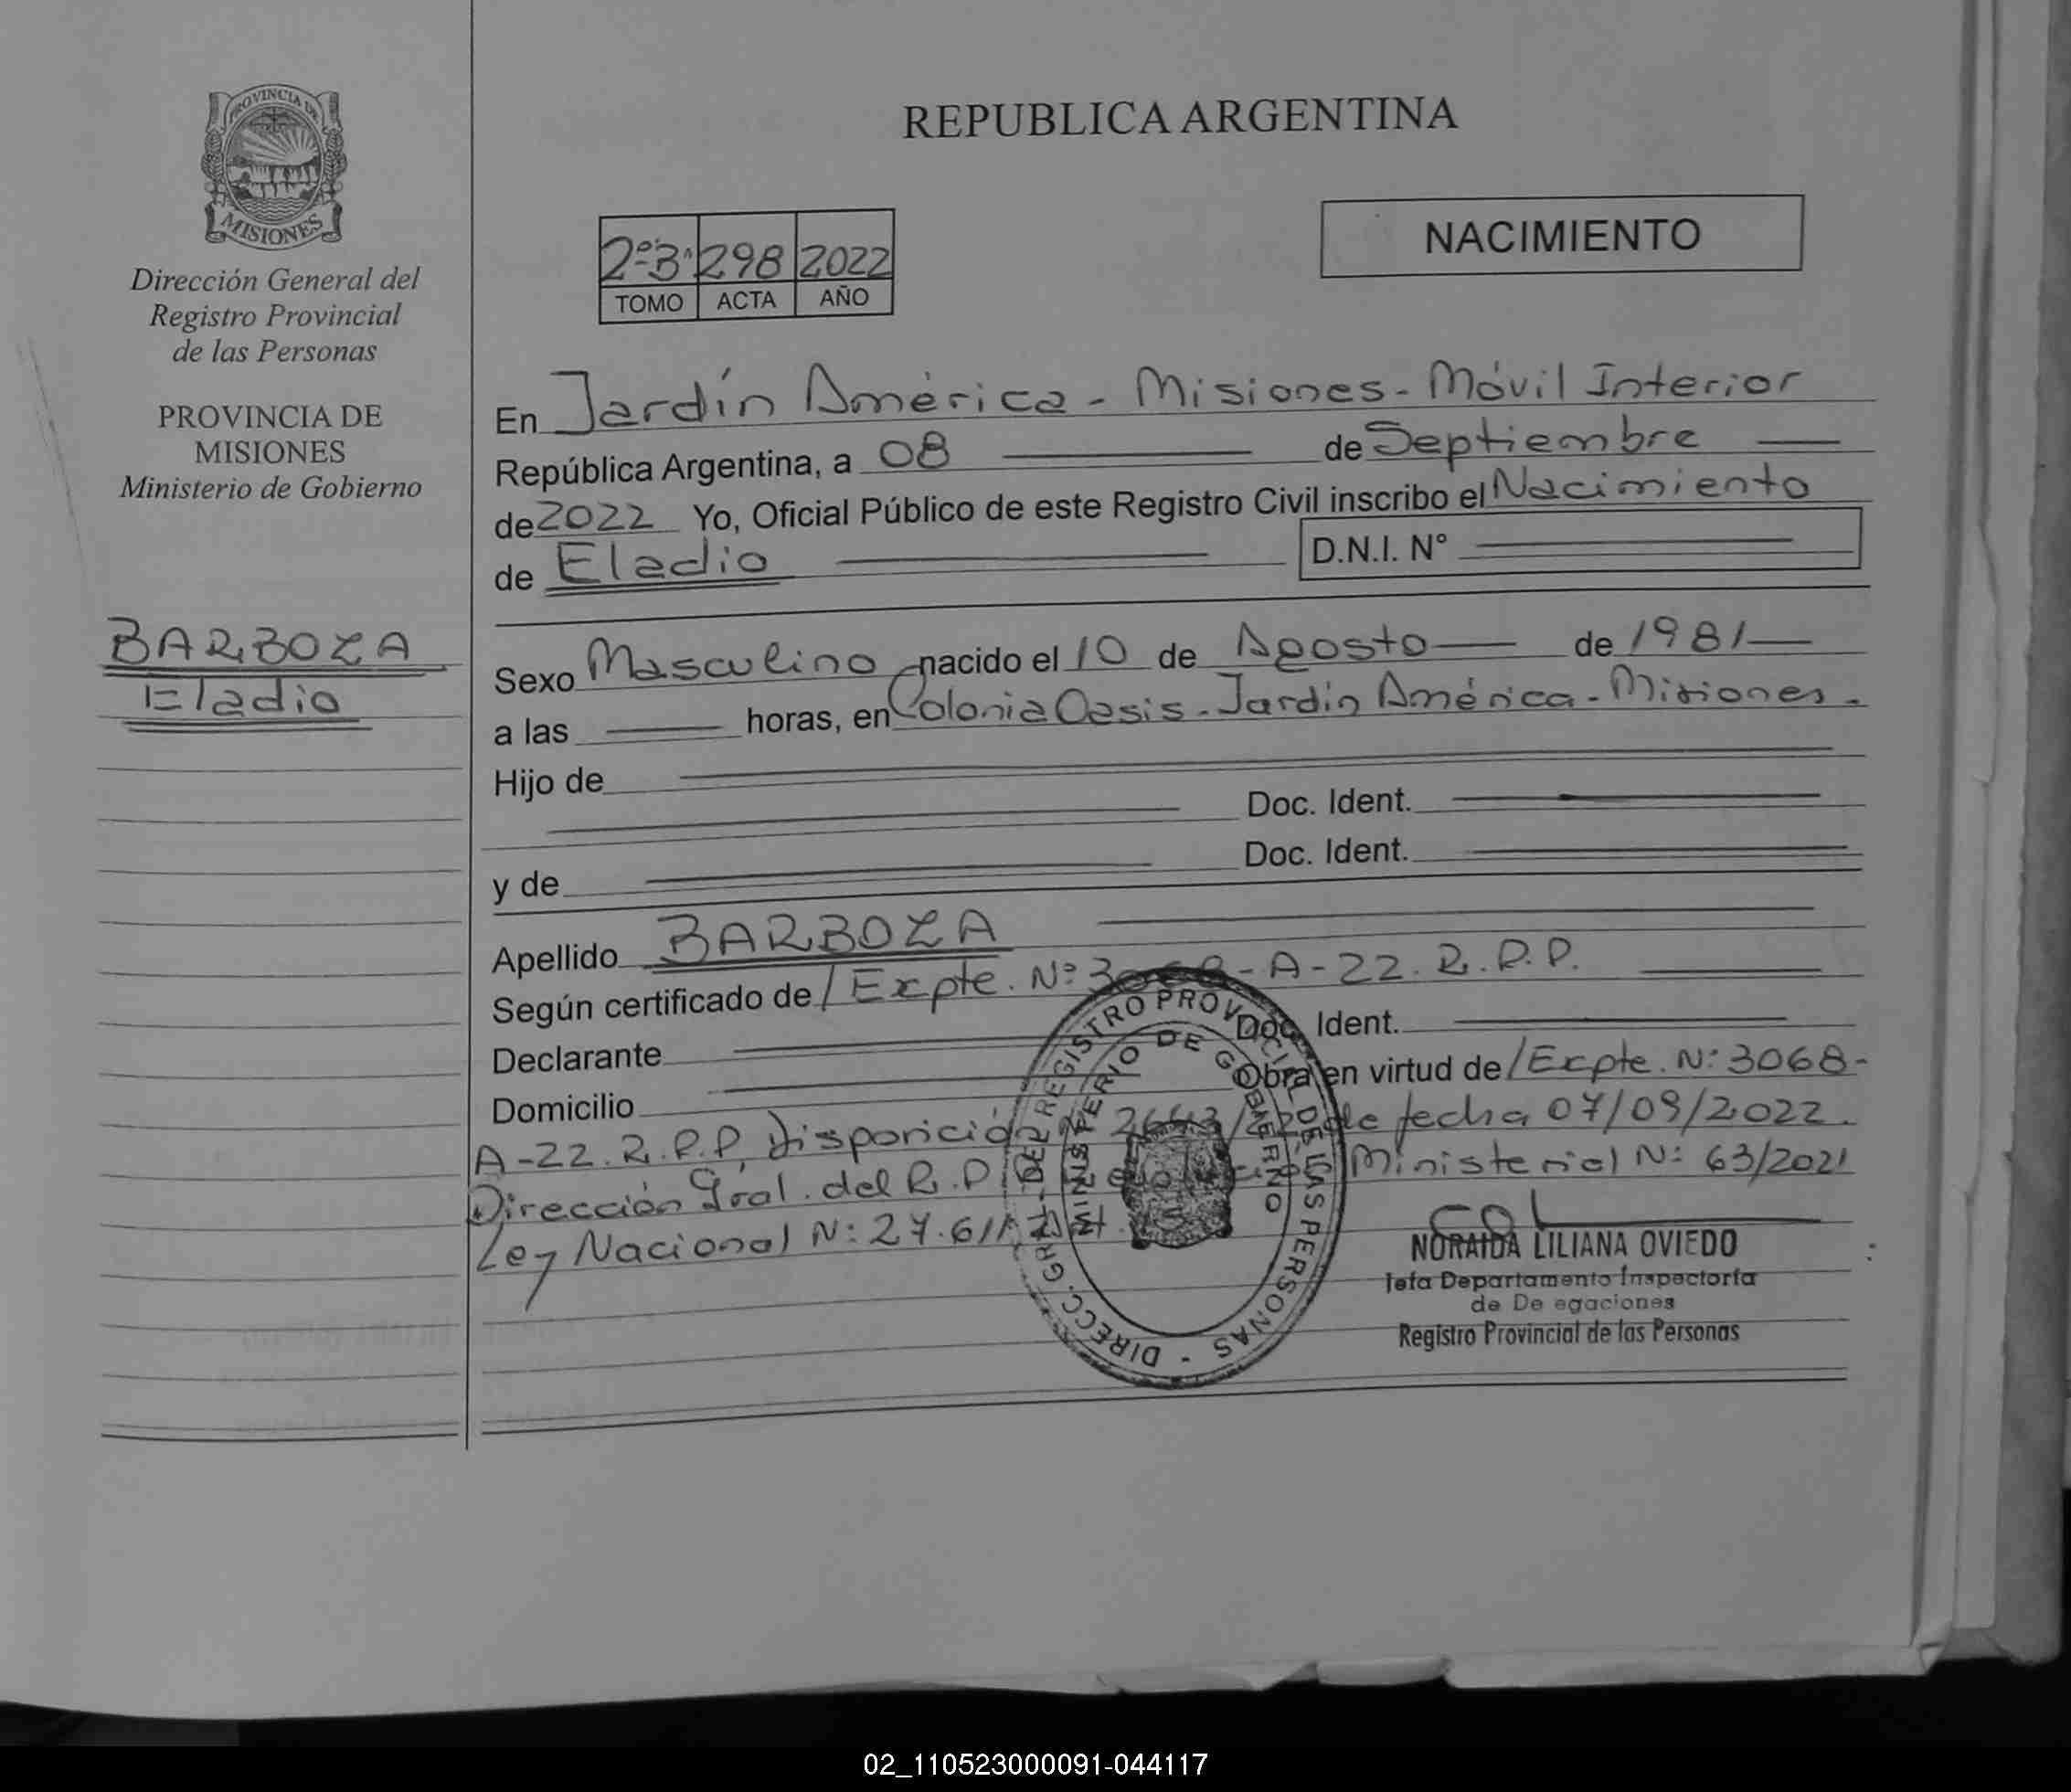 PROVINCIA DE
MISIONES
Dirección General del
Registro Provincial
de las Personas
PROVINCIA DE
MISIONES
Ministerio de Gobierno
BARBOZA
Eladio
REPUBLICA ARGENTINA
NACIMIENTO
2º B 298 2022
TOMO ACTA AÑO
En Jardín América - Misiones - Móvil Interior
República Argentina, a 08 de Septiembre
de 2022 Yo, Oficial Público de este Registro Civil inscribo el Nacimiento
de Eladio D.N.I. N°
Sexo Masculino nacido el 10 de Agosto de 1981
a las horas, en Colonia Oasis - Jardín América - Misiones.
Hijo de
Doc. Ident.
y de Doc. Ident.
Apellido BARBOZA
Según certificado de Expte. Nº 3068-A-22. R.P.P.
Declarante Doc. Ident.
Domicilio Obra en virtud de Expte. Nº 3068-
A-22. R.P.P. Disposición 2643/22 de fecha 07/09/2022.
Dirección Gral. del R.P. Ministerial Nº 63/2021
Ley Nacional Nº 27.611
DIRECC. GRAL. DEL REGISTRO PROVINCIAL DE LAS PERSONAS -
MINISTERIO DE GOBIERNO
NORAIDA LILIANA OVIEDO
Jefa Departamento Inspectoría
de De egaciones
Registro Provincial de las Personas
02_110523000091-044117